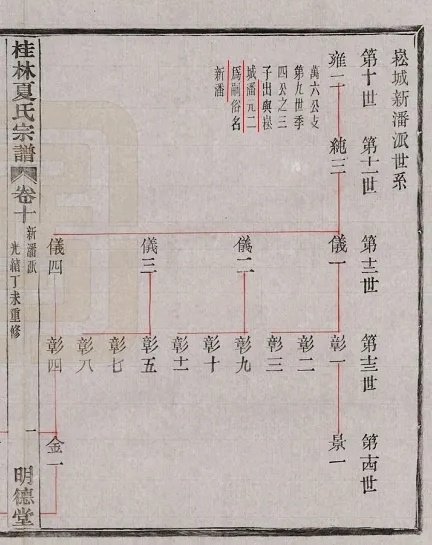 崧城新潘派世系
第十世
第十一世
第十二世
第十三世
第十四世
雍二
萬六公支
第九世季
四公之三
子出與崧
城潘元二
爲嗣俗名
新潘
純三
儀一
儀二
儀三
儀四
彰一
彰二
彰三
彰九
彰十
彰十一
彰五
彰七
彰八
彰四
景一
金一
桂林夏氏宗譜
卷十
新潘派
光緒丁未重修
一
明德堂